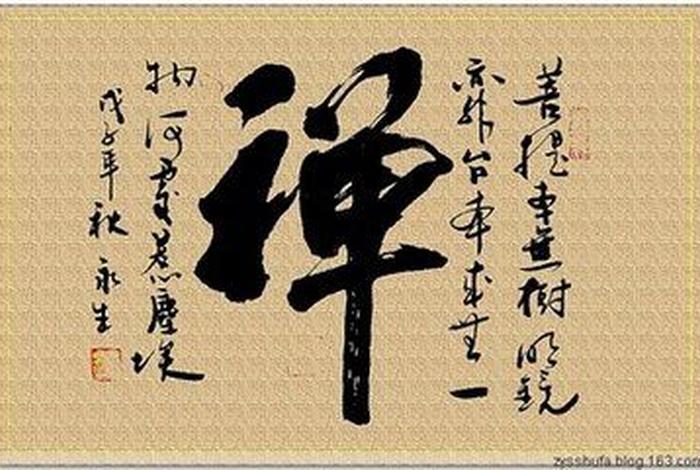 菩提本無樹明鏡
亦非台本来无一
禅
物何處惹塵埃
戊子年秋永生
zysshufa.blog.163.com